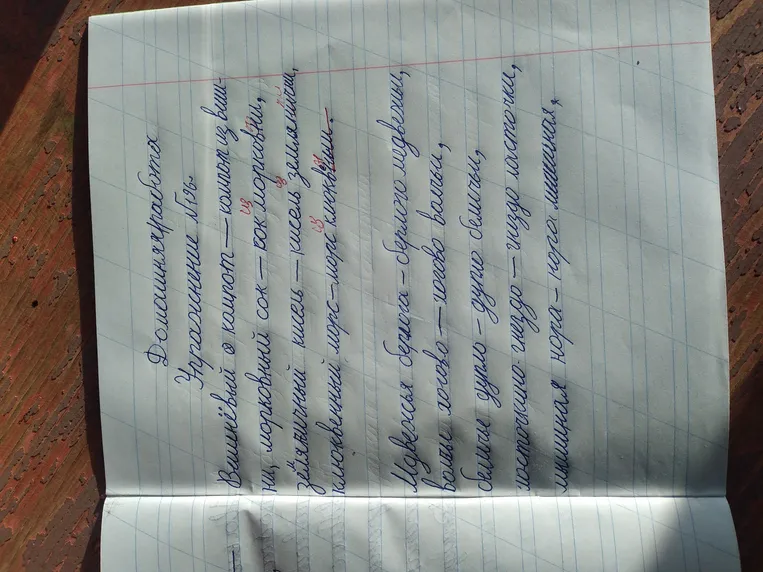 Домашняя работа
Упражнение №6.
Вишнёвый о компот – компот из виш-
ни, морковный сок – сок из моркови,
земляничный кисель – кисель из земляники,
клюквенный морс – морс из клюквы.
Медвежья берлога – берлога медвежьи,
волчье логово – логово волчьи,
беличье дупло – дупло беличьи,
ласточкино гнездо – гнездо ласточки,
мышиная нора – нора мышиная,